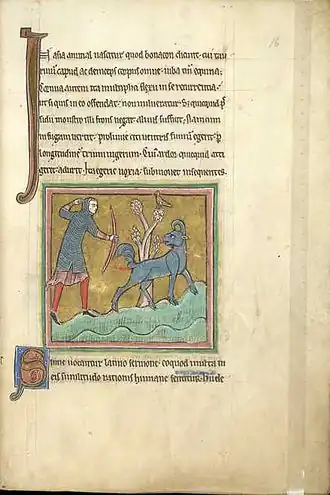 16
In asia animal nascitur quod bonacon dicunt. cui tau
rinum caput ac deinceps corpus omne. iuba tm̄ equina.
Cornua autem ita multiplici flexu in se recurrentia.
ut si quis in eo offendat. non vulneretur. Sꝫ quicquid p̄
sidii monstro illi frons negat. alvus sufficit. Nam cum
in fugam vertit. proluvie citi ventris fimum egerit. p
longitudinem trium iugerum. Cuius ardor quicquid atti
gerit adurit. Ita egerie noxia. submovet insequentes.
Simie vocantur latino sermone. eo quod multa in
eis similitudo rationis humane sentitur.